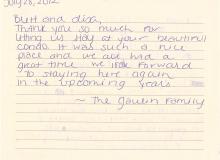 July 28, 2012
Butt and dixa,
Thank you so much for
litting us stay at your beautiful
condo. It was such a nice
place and we all had a
great time. We look forward
to staying here again
in the upcoming years
~ The Family